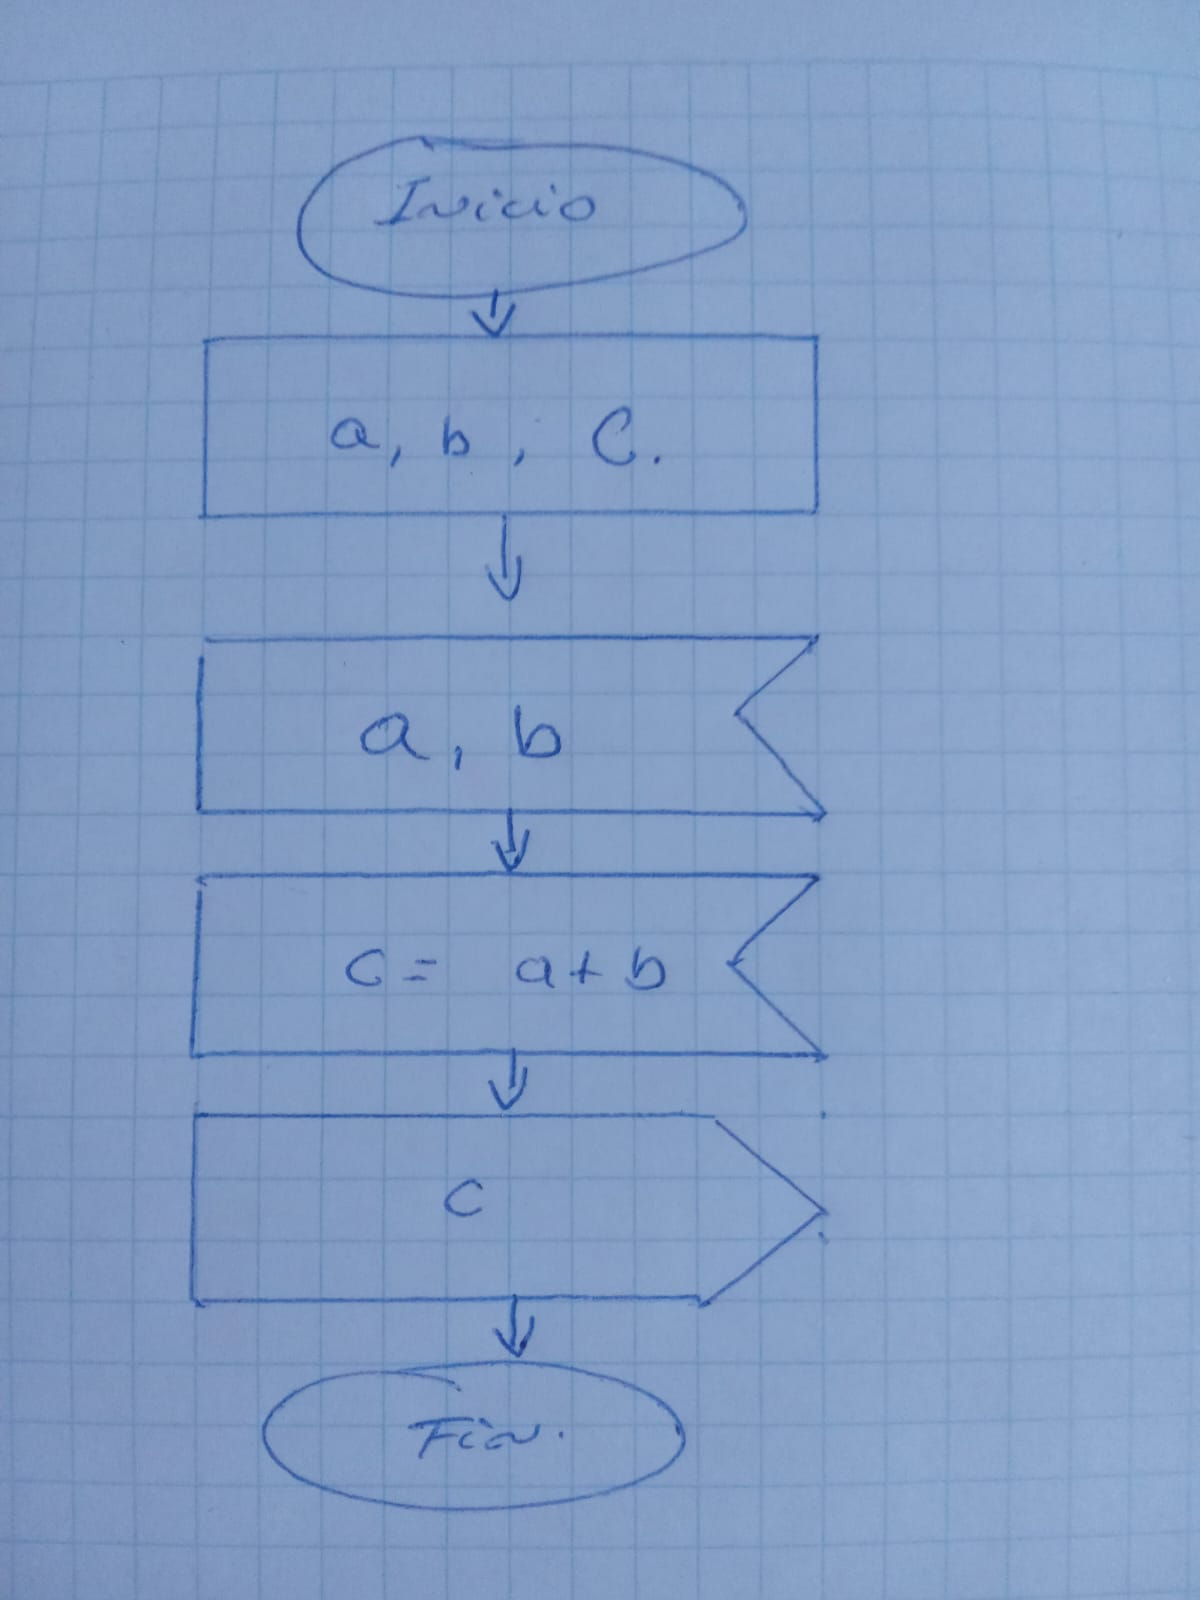 Inicio
a, b, C.
a, b
C= a+b
C
Fin.